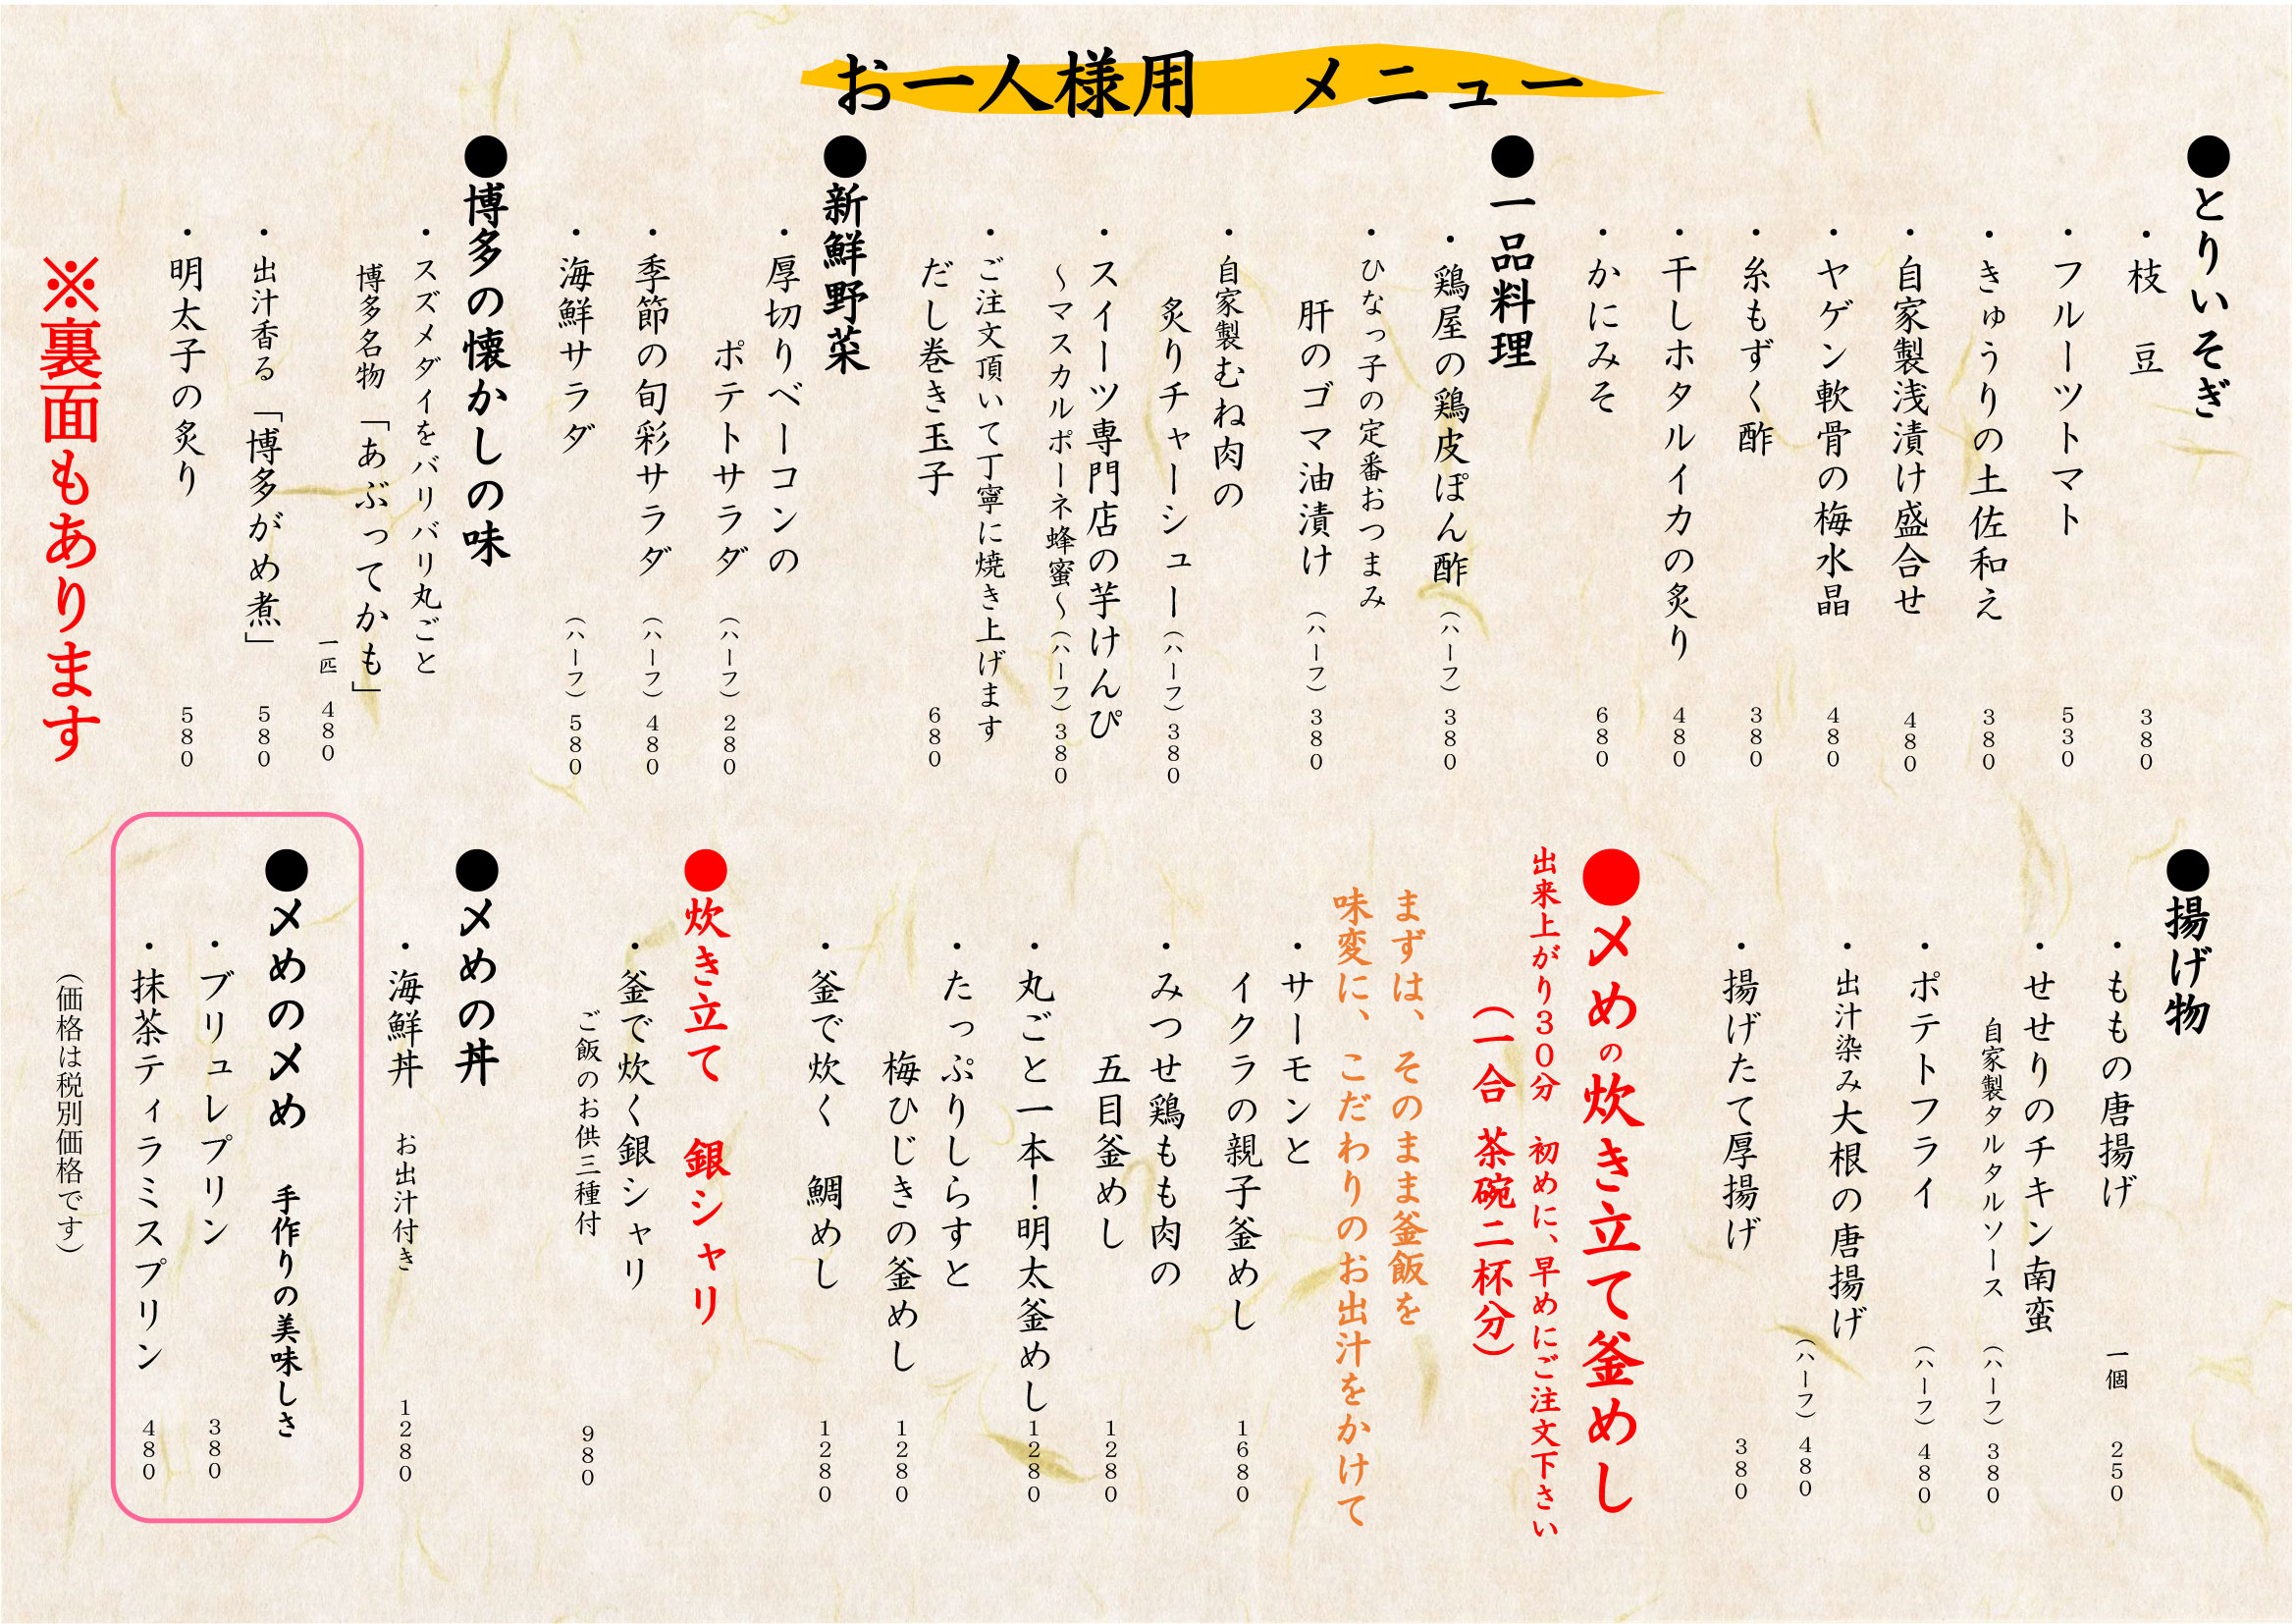 お一人様用 メニュー
●とりいそぎ
・枝 豆 380
・フルーツトマト 530
・きゅうりの土佐和え 380
・自家製浅漬け盛合せ 480
・ヤゲン軟骨の梅水晶 480
・糸もずく酢 380
・干しホタルイカの炙り 480
・かにみそ 680
●一品料理
・鶏屋の鶏皮ぽん酢 (ハーフ) 380
・ひなっ子の定番おつまみ
肝のゴマ油漬け (ハーフ) 380
・自家製むね肉の
炙りチャーシュー (ハーフ) 380
・スイーツ専門店の芋けんぴ
~マスカルポーネ蜂蜜~ (ハーフ) 380
・ご注文頂いて丁寧に焼き上げます
だし巻き玉子 680
●新鮮野菜
・厚切りベーコンの
ポテトサラダ (ハーフ) 280
・季節の旬彩サラダ (ハーフ) 480
・海鮮サラダ (ハーフ) 580
●博多の懐かしの味
・スズメダイをバリバリ丸ごと
博多名物「あぶってかも」
一匹 480
・出汁香る「博多がめ煮」 580
・明太子の炙り 580
※裏面もあります
●揚げ物
・ももの唐揚げ 一個 250
・せせりのチキン南蛮
自家製タルタルソース (ハーフ) 380
・ポテトフライ (ハーフ) 480
・出汁染み大根の唐揚げ
(ハーフ) 480
・揚げたて厚揚げ 380
●〆めの炊き立て釜めし
出来上がり30分 初めに、早めにご注文下さい
(一合 茶碗二杯分)
まずは、そのまま釜飯を
味変に、こだわりのお出汁をかけて
・サーモンと
イクラの親子釜めし 1680
・みつせ鶏もも肉の
五目釜めし 1280
・丸ごと一本!明太釜めし 1280
・たっぷりしらすと
梅ひじきの釜めし 1280
・釜で炊く 鯛めし 1280
●炊き立て 銀シャリ
・釜で炊く銀シャリ
ご飯のお供三種付 980
●〆めの丼
・海鮮丼 お出汁付き 1280
●〆めの〆め 手作りの美味しさ
・ブリュレプリン 380
・抹茶ティラミスプリン 480
(価格は税別価格です)